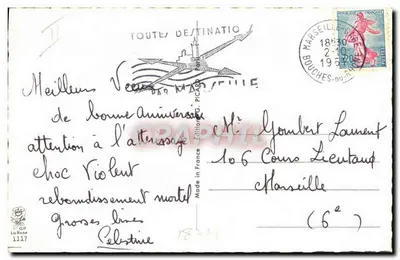 TOUTES DESTINATIO
PAR MARSEILLE
MARSEILLE
18H30
2-10
19
BOUCHES-DU-RHONE
Meilleurs Vœux
de bonne Anniversaire
attention à l'atterissage
choc Violent
rebondissement mortel
grosses bises
Celestine
Mr Gombert Laurent
106 Cours Lieutaud
Marseille
(6e)
Made in France
La Rose
1317